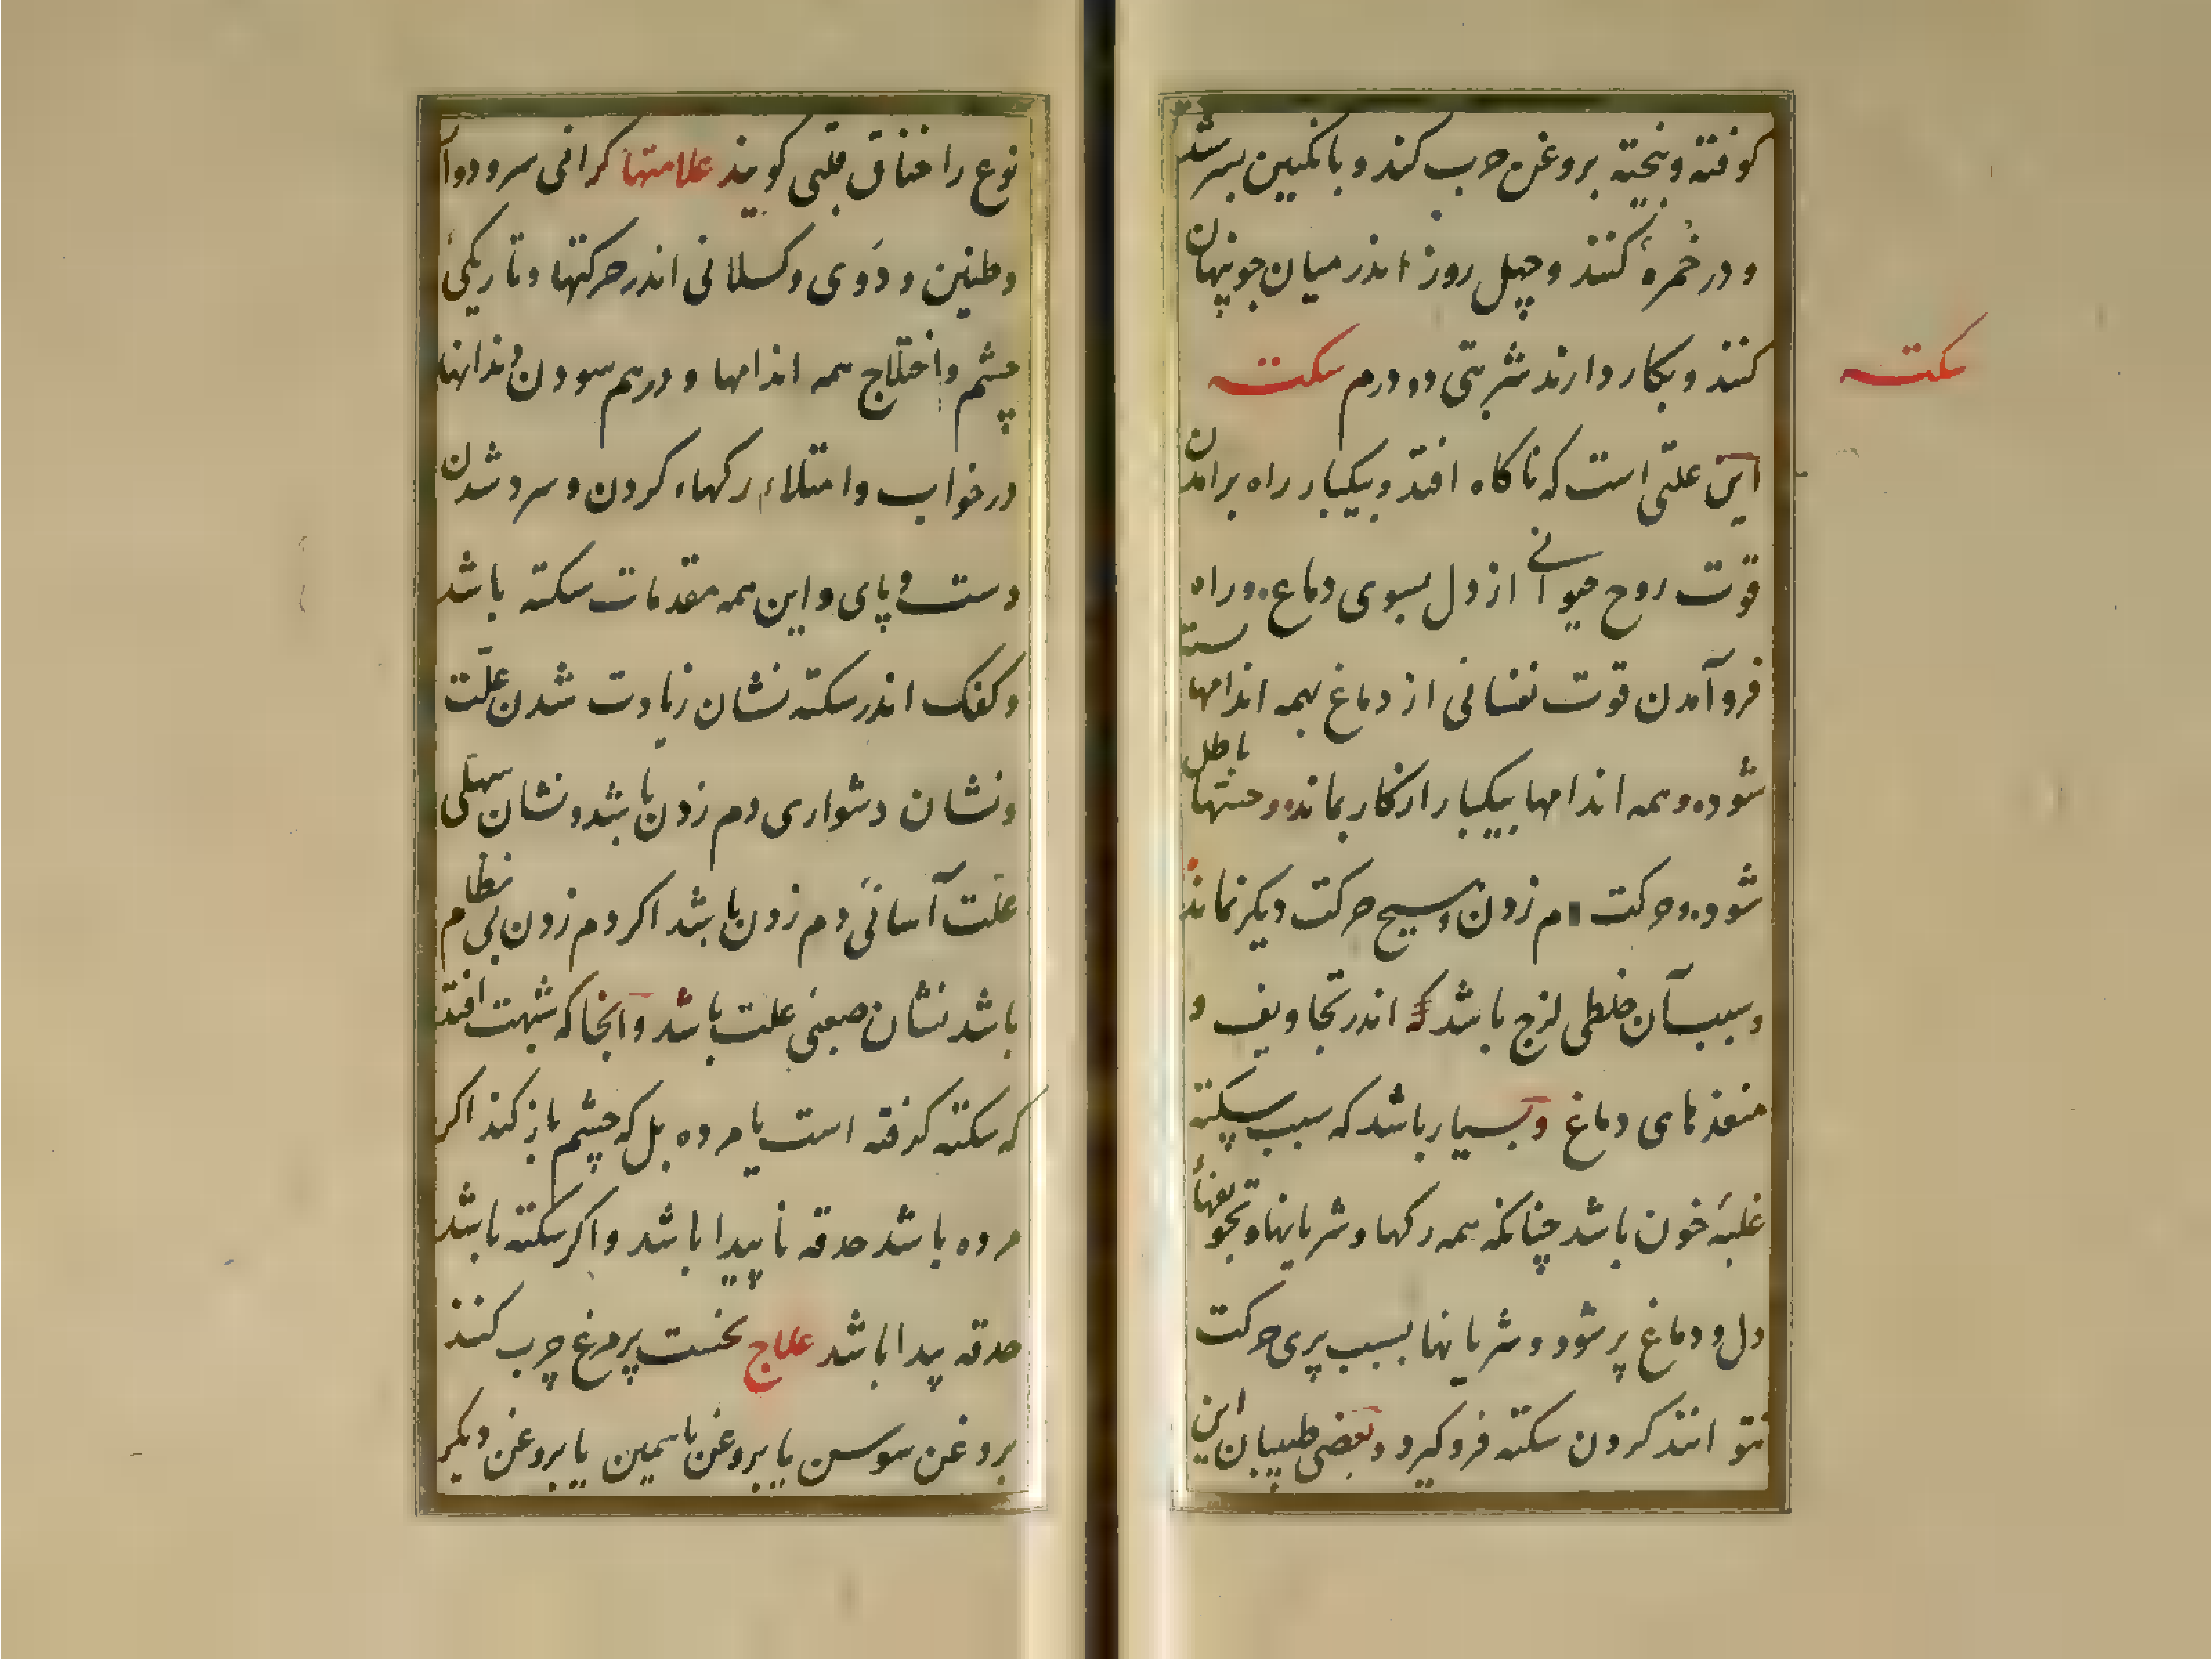 کوفته و بیخته بروغن چرب کند و بانکبین بسرشد
و در خمرهٔ کنند و چهل روز اندر میان جو پنهان
کنند و بکار دارند شربتی دو درم سکته
سکته
این علتی است که ناکاه افتد و بیکبار راه برامدن
قوت روح حیوانی از دل بسوی دماغ و راه
فروآمدن قوت نفسانی از دماغ بهمه اندامها بسته
شود و همه اندامها بیکبار از کار بماند و حسّها باطل
شود و حرکت دم زدن و هیچ حرکت دیکر نماند
و سبب آن خلطی لزج باشد که اندر تجاویف و
منفذهای دماغ و بسیار باشد که سبب سکته
غلبهٔ خون باشد چنانکه همه رکها و شریانها و تجویفهاء
دل و دماغ پر شود و شریانها بسبب پری حرکت
نتوانند کردن سکته فروکیرد و بعضی طبیبان این
نوع را خناق قلبی کویند علامتها کرانی سر و دوار
و طنین و دَوی و کسلانی اندر حرکتها و تاریکیٔ
چشم و اختلاج همه اندامها و درهم سودن دندانها
در خواب و امتلاء رکهاء کردن و سرد شدن
دست و پای و این همه مقدمات سکته باشد
و کفک اندر سکته نشان زیادت شدن علّت
و نشان دشواری دم زدن باشد و نشان سهلی
علّت آسانی دم زدن باشد اکر دم زدن بی نظام
باشد نشان صعبی علت باشد و آنجا که شبهت افتد
که سکته کرفته است یا مرده بل که چشم باز کند اکر
مرده باشد حدقه ناپیدا باشد و اکر سکته باشد
حدقه پیدا باشد علاج نخست پر مرغ چرب کنند
بروغن سوسن یا بروغن یاسمین یا بروغن دیکر